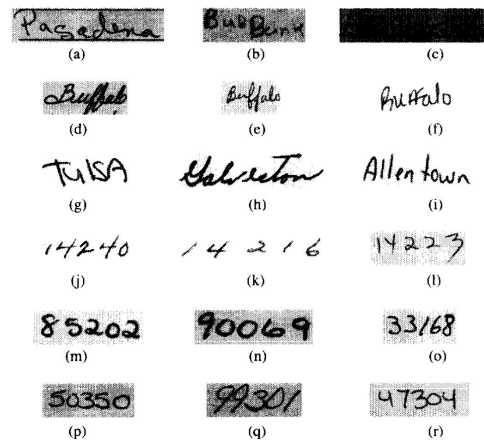 Pasadena Bur Bank
(a) (b) (c)
Buffalo Buffalo Buffalo
(d) (e) (f)
TulSA Galveston Allentown
(g) (h) (i)
14240 14216 14223
(j) (k) (l)
85202 90069 33168
(m) (n) (o)
50350 99301 47304
(p) (q) (r)